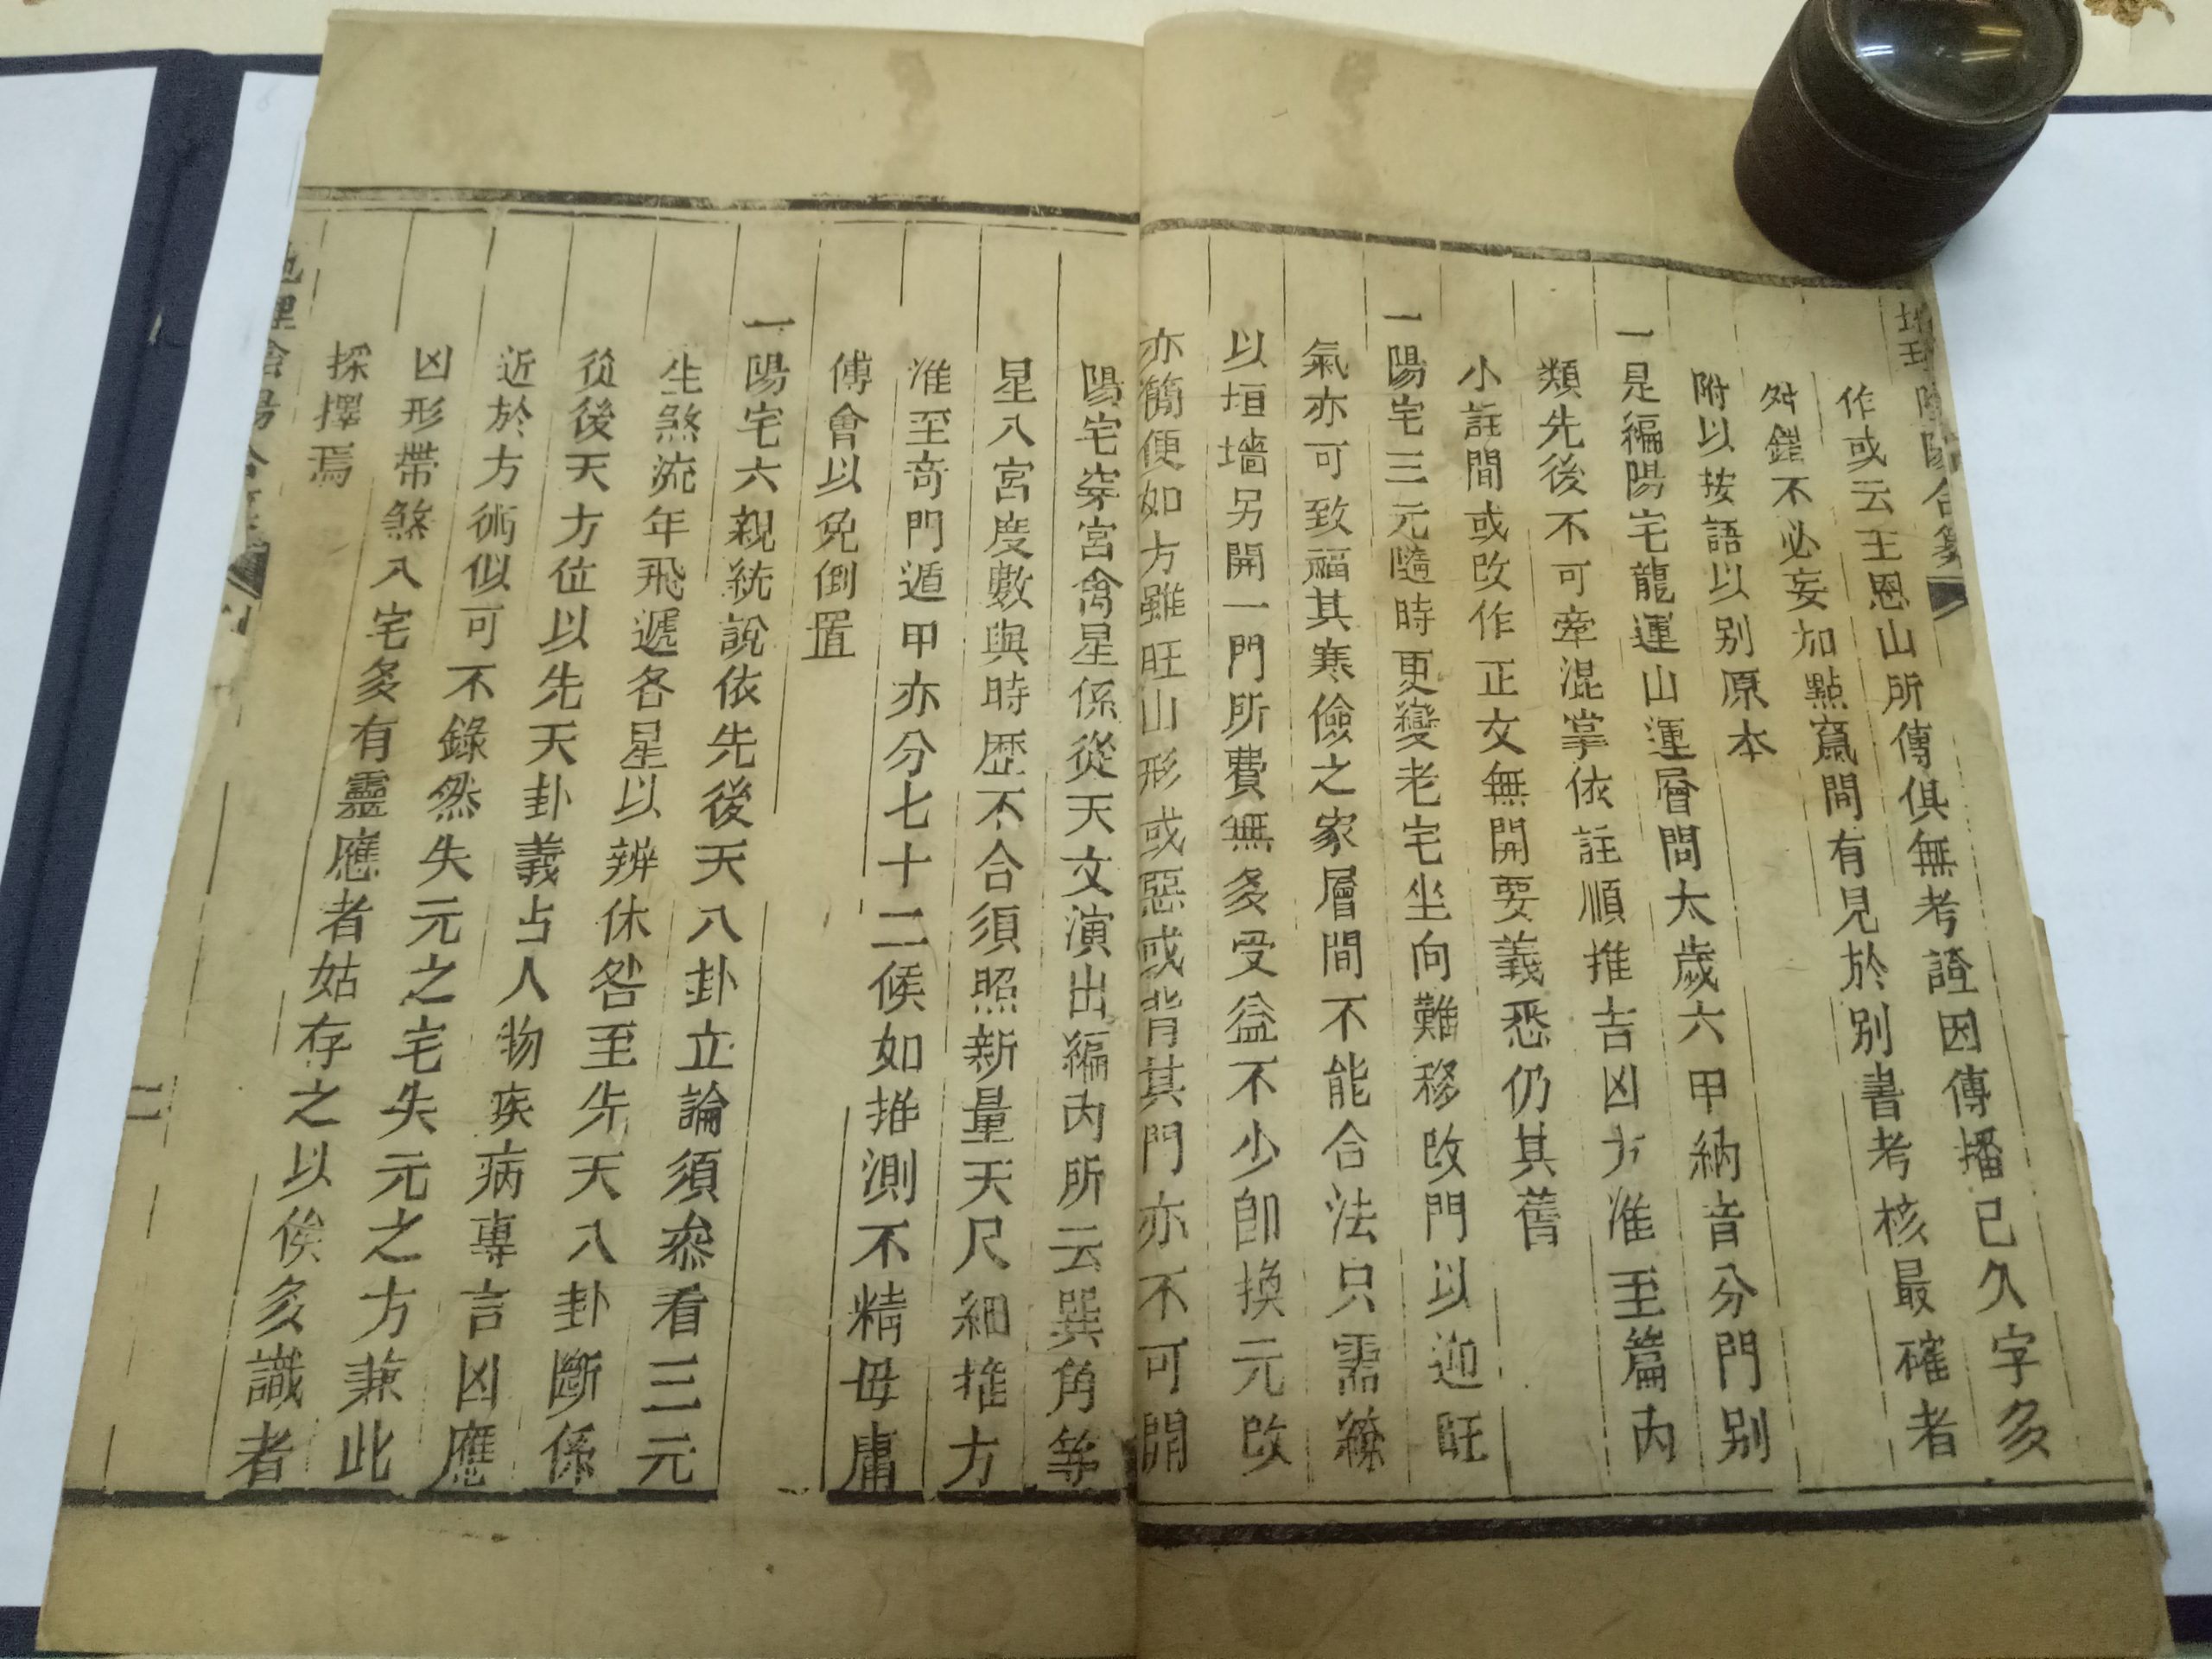 陰陽合纂
作或云王恩山所傳俱無考證因傳播已久字多
舛錯不必妄加點竄間有見於别書考核最確者
附以按語以别原本
一是編陽宅龍運山運層間太歲六甲納音分門别
類先後不可牽混掌依註順推吉凶方准至篇内
小註間或改作正文無開要義悉仍其舊
一陽宅三元隨時更變老宅坐向難移改門以迎旺
氣亦可致福其寒儉之家層間不能合法只需
以垣墙另開一門所費無多受益不少卽換元改
亦簡便如方雖旺山形或惡或背其門亦不可開
陽宅穿宮禽星係從天文演出編内所云巽角等
星八宮度數與時歴不合須照新量天尺細推方
准至奇門遁甲亦分七十二候如推測不精毋庸
傅會以免倒置
一陽宅六親統說依先後天八卦立論須叅看三元
生煞流年飛遞各星以辨休咎至先天八卦斷係
從後天方位以先天卦義占人物疾病專言凶應
近於方術似可不錄然失元之宅失元之方兼此
凶形帶煞入宅多有靈應者姑存之以俟多識者
採擇焉
地理陰陽合纂
二